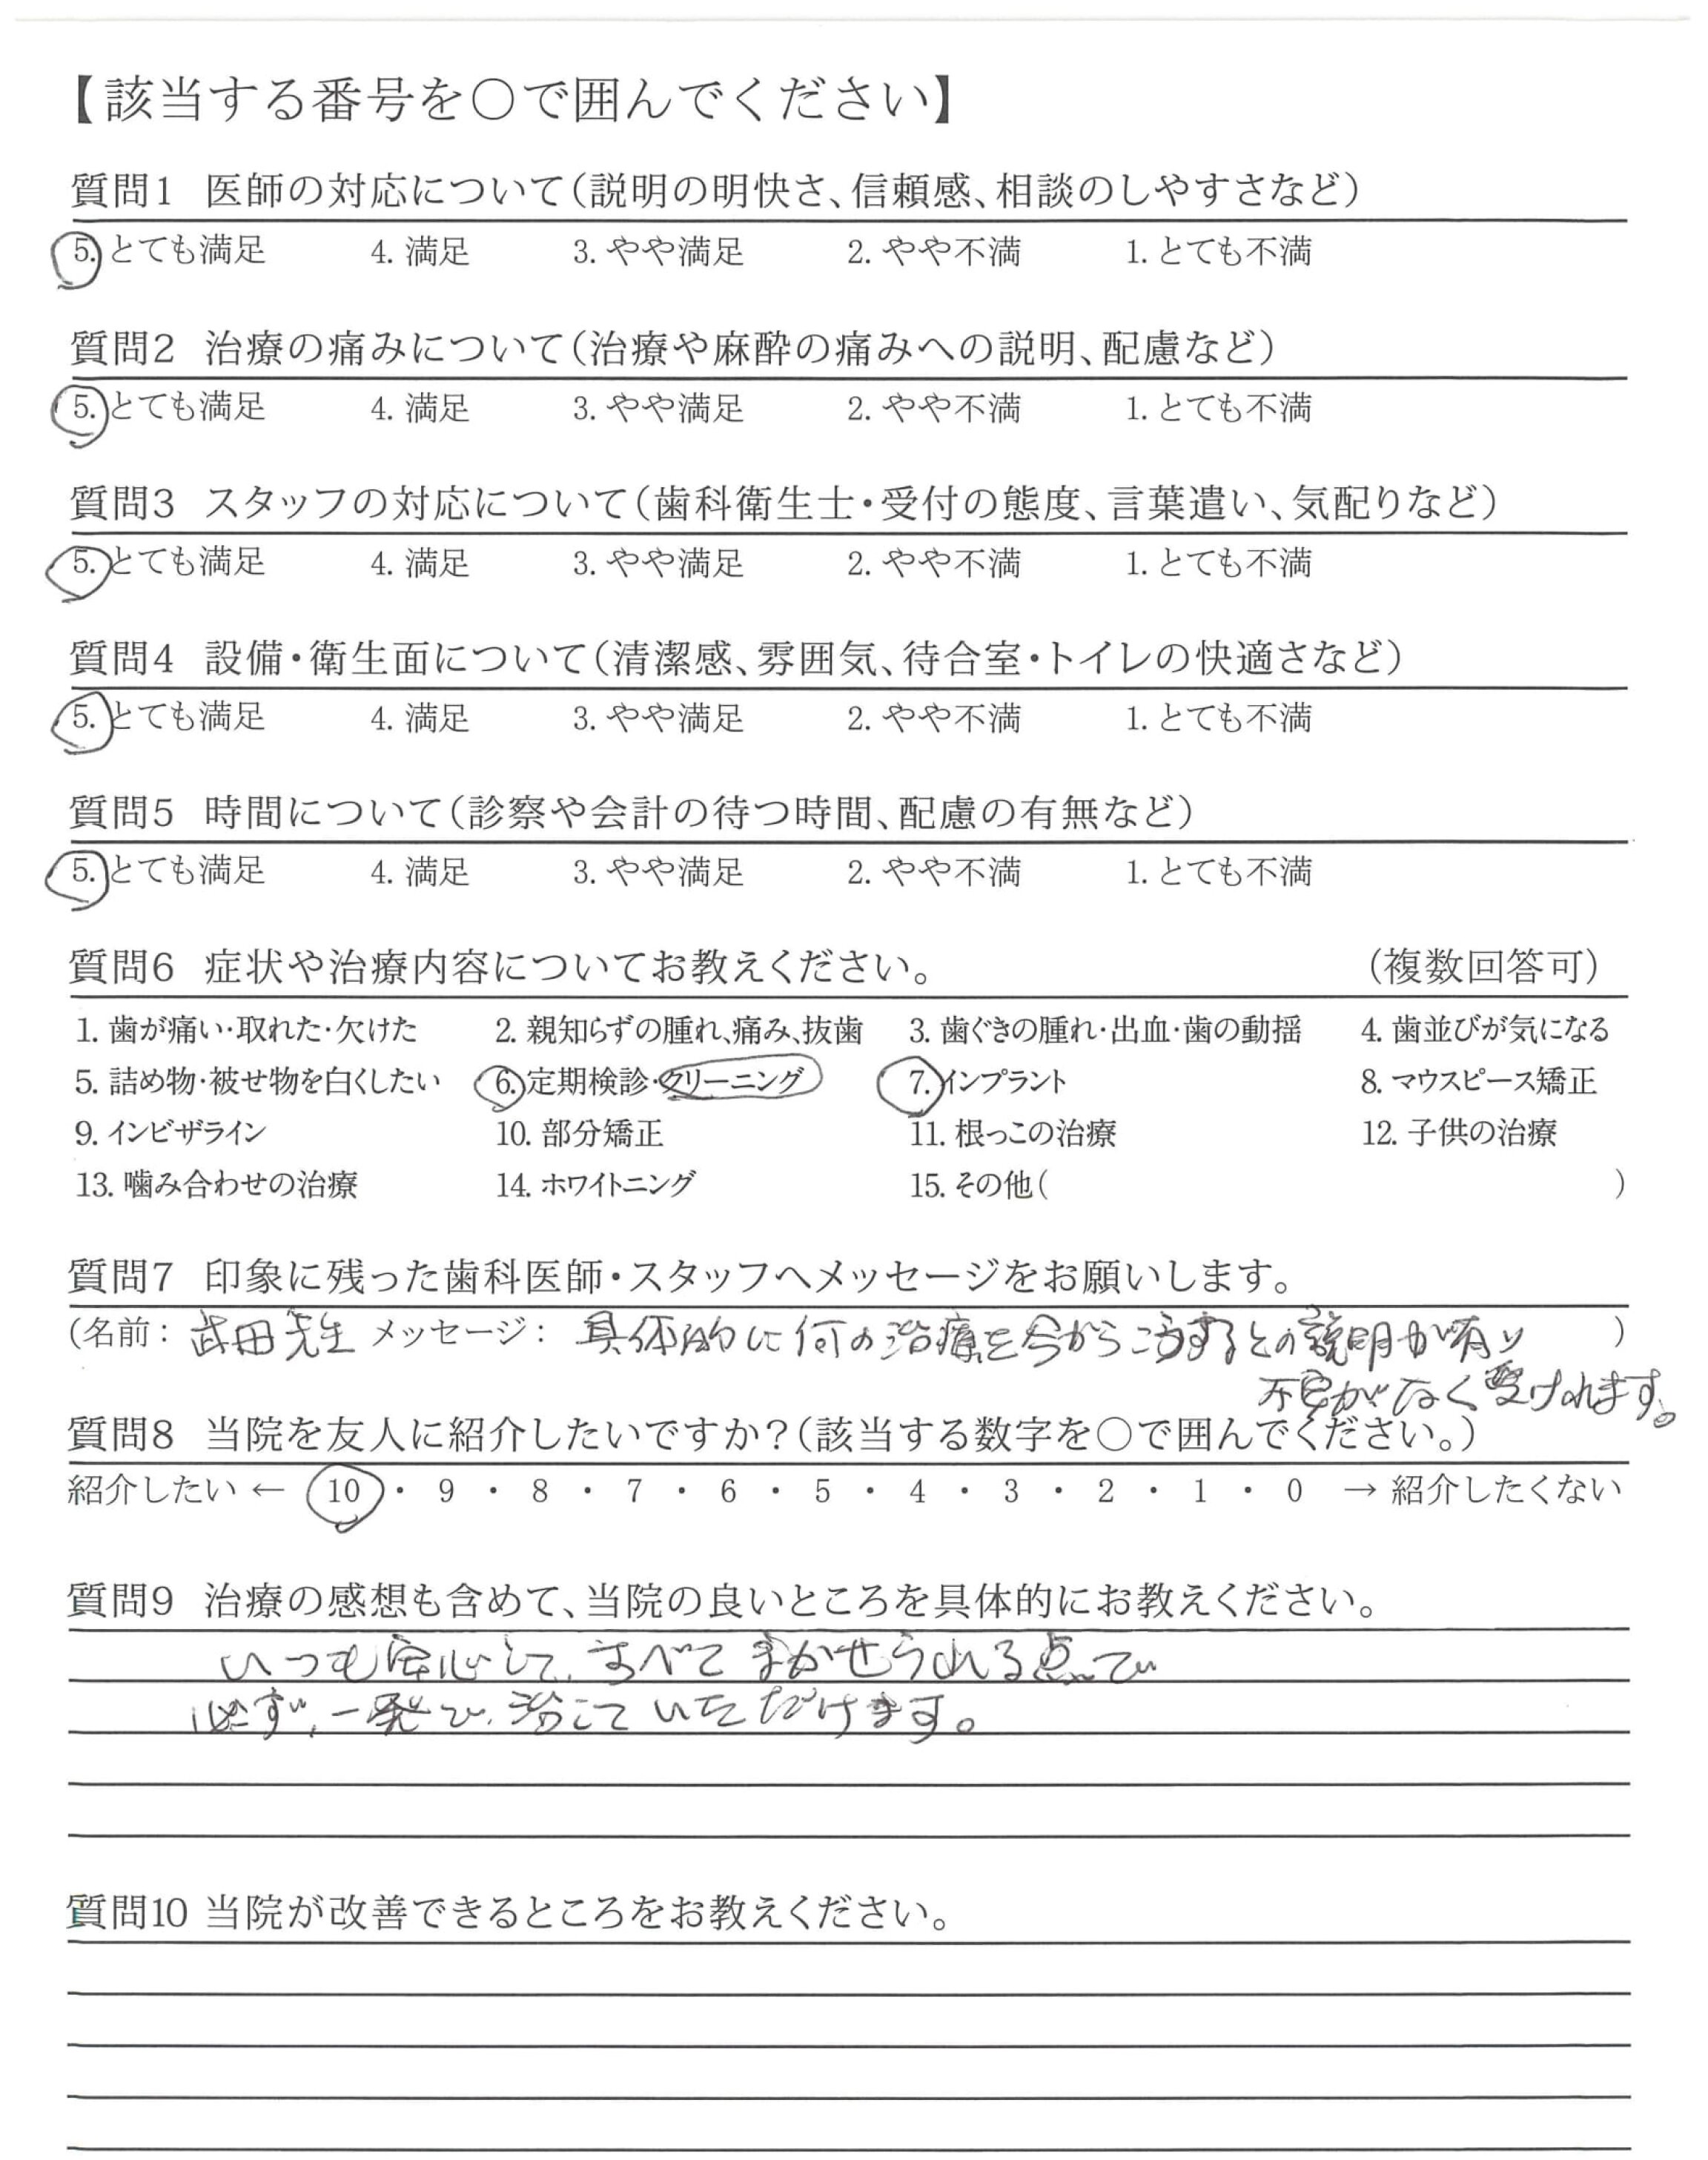 【該当する番号を○で囲んでください】
質問1 医師の対応について(説明の明快さ、信頼感、相談のしやすさなど)
5. とても満足 4. 満足 3. やや満足 2. やや不満 1. とても不満
質問2 治療の痛みについて(治療や麻酔の痛みへの説明、配慮など)
5. とても満足 4. 満足 3. やや満足 2. やや不満 1. とても不満
質問3 スタッフの対応について(歯科衛生士・受付の態度、言葉遣い、気配りなど)
5. とても満足 4. 満足 3. やや満足 2. やや不満 1. とても不満
質問4 設備・衛生面について(清潔感、雰囲気、待合室・トイレの快適さなど)
5. とても満足 4. 満足 3. やや満足 2. やや不満 1. とても不満
質問5 時間について(診察や会計の待つ時間、配慮の有無など)
5. とても満足 4. 満足 3. やや満足 2. やや不満 1. とても不満
質問6 症状や治療内容についてお教えください。 (複数回答可)
1. 歯が痛い・取れた・欠けた 2. 親知らずの腫れ、痛み、抜歯 3. 歯ぐきの腫れ・出血・歯の動揺 4. 歯並びが気になる
5. 詰め物・被せ物を白くしたい 6. 定期検診・クリーニング 7. インプラント 8. マウスピース矯正
9. インビザライン 10. 部分矯正 11. 根っこの治療 12. 子供の治療
13. 噛み合わせの治療 14. ホワイトニング 15. その他( )
質問7 印象に残った歯科医師・スタッフへメッセージをお願いします。
(名前: 武田先生 メッセージ: 具体的に何の治療を今からこうするとの説明が有り )
不安がなく受けれます。
質問8 当院を友人に紹介したいですか?(該当する数字を○で囲んでください。)
紹介したい ← 10 ・ 9 ・ 8 ・ 7 ・ 6 ・ 5 ・ 4 ・ 3 ・ 2 ・ 1 ・ 0 → 紹介したくない
質問9 治療の感想も含めて、当院の良いところを具体的にお教えください。
いつも安心して、すべてまかせられる点で
必ず、一発で、治していただけます。
質問10 当院が改善できるところをお教えください。